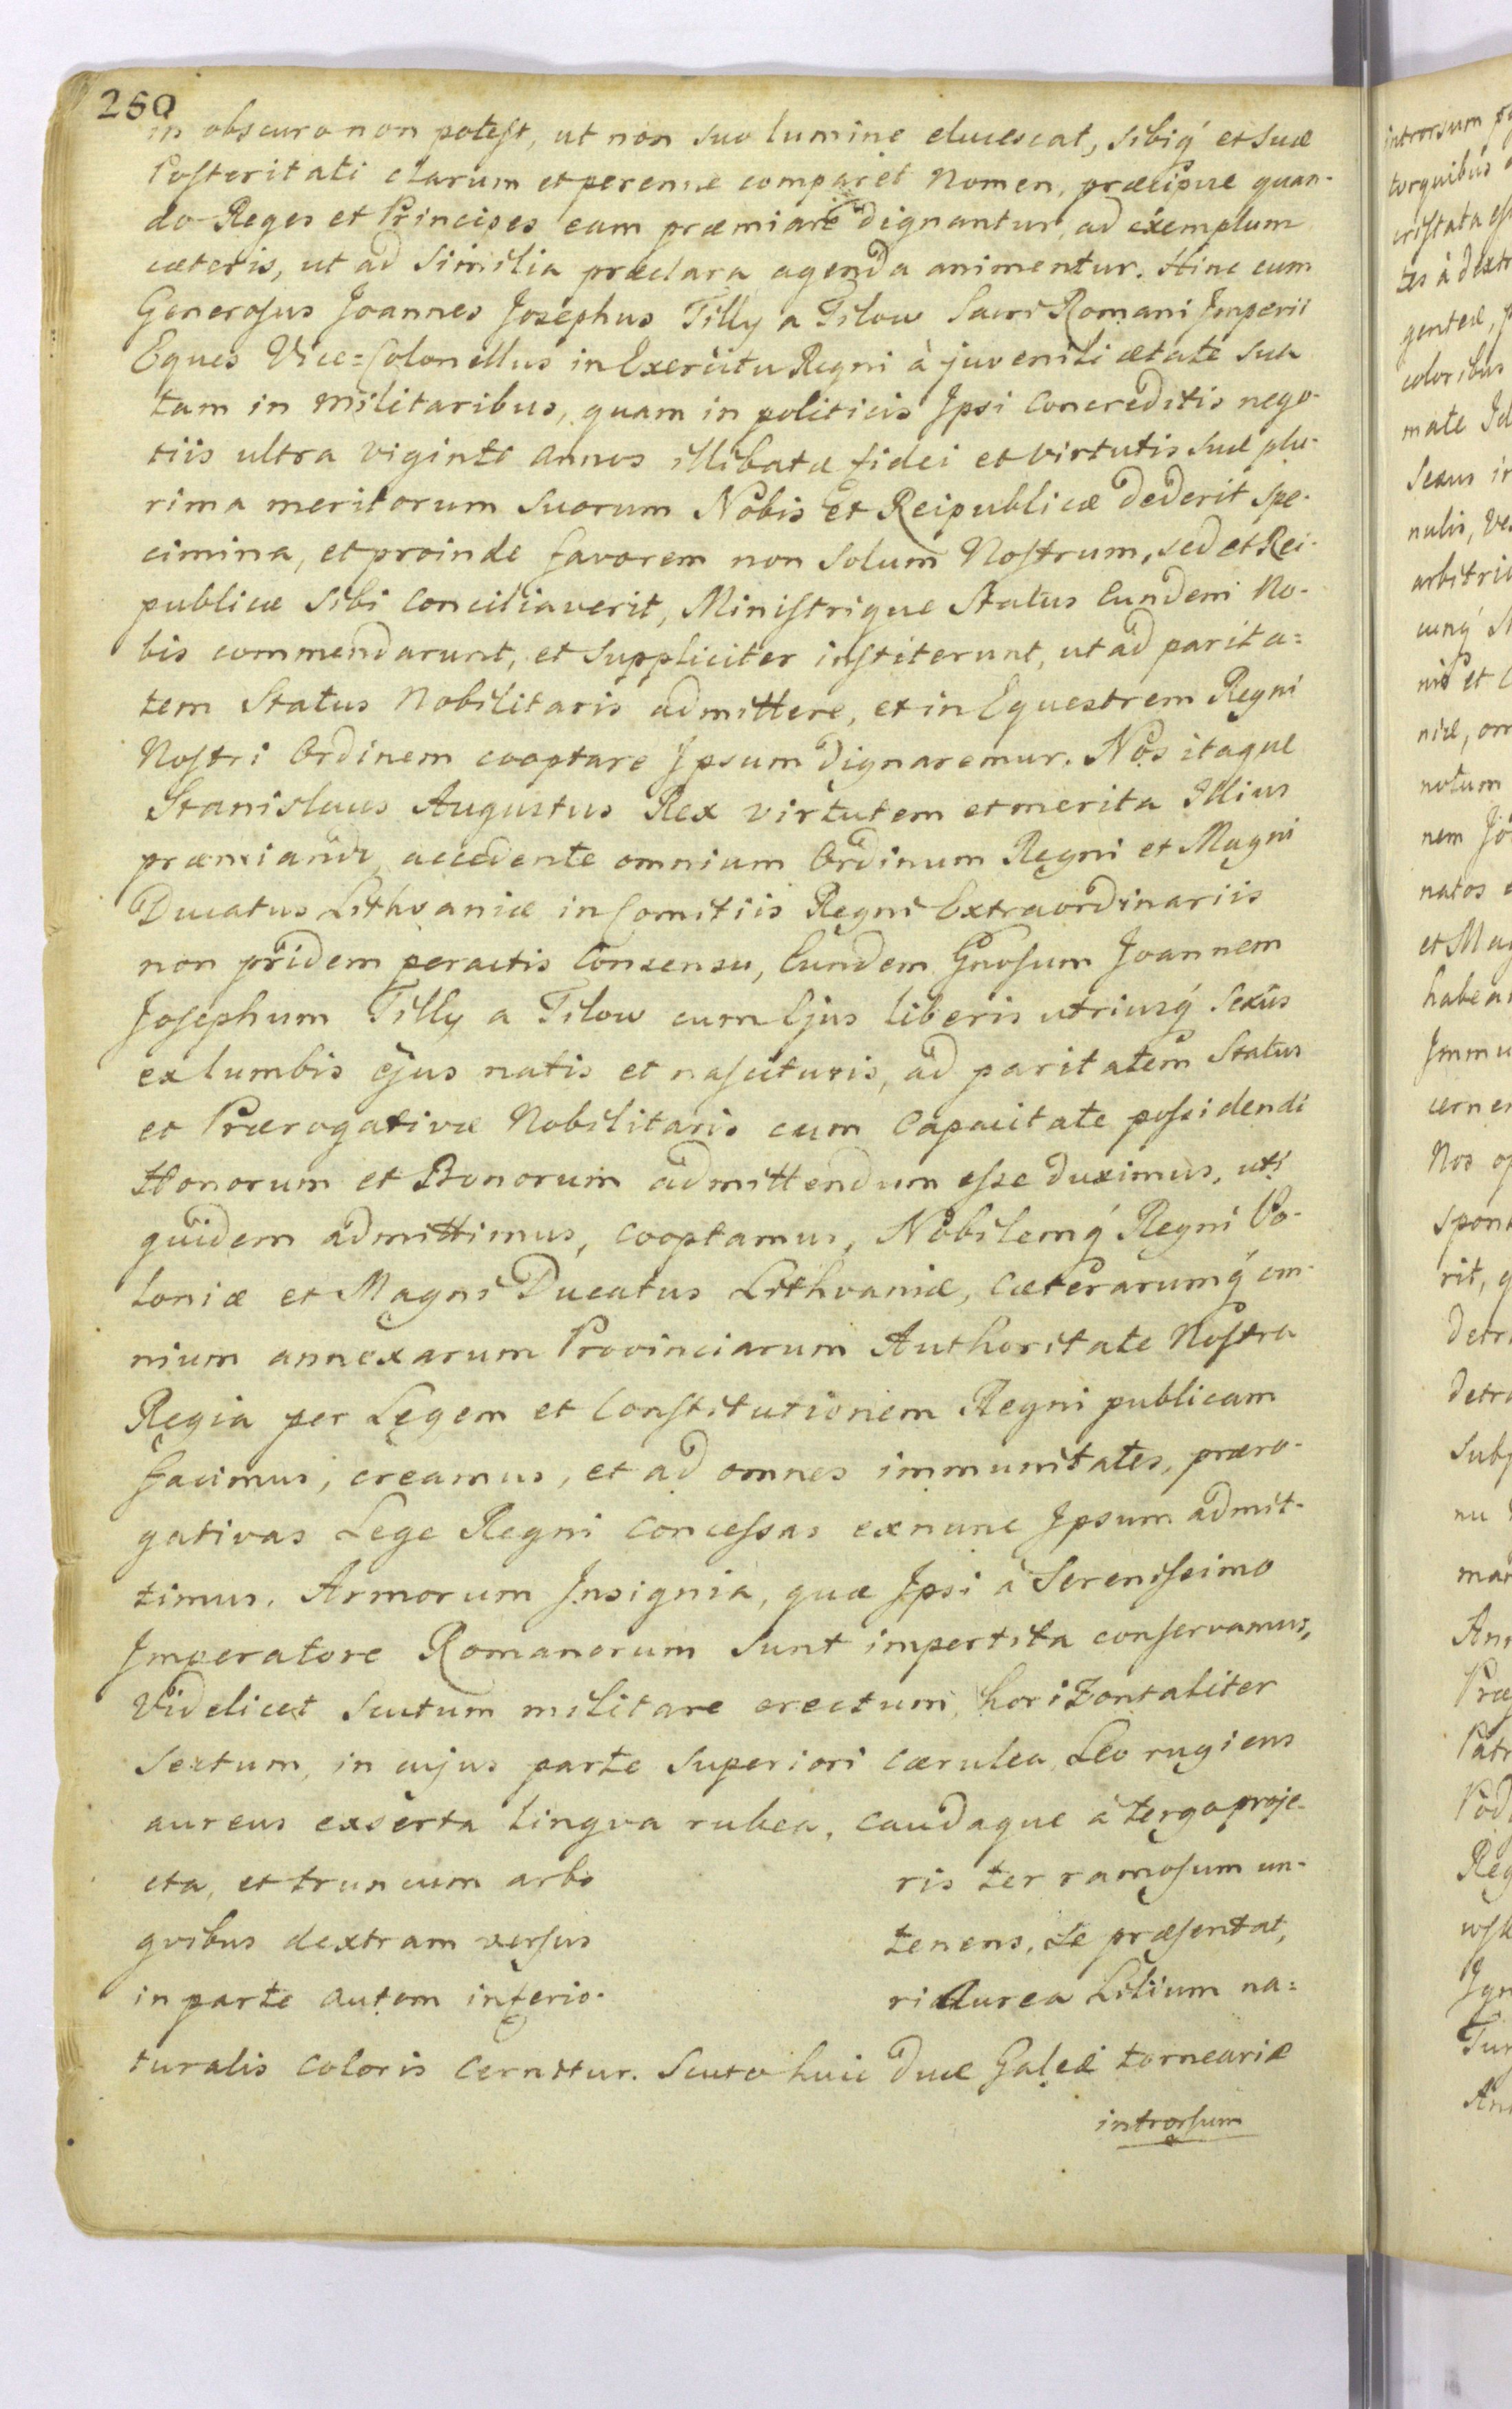 250
in obscuro non potest, ut non suo lumine elucescat, sibiq́ et suæ
Posteritati clarum et perenne comparet Nomen, præcipue quan-
do Reges et Principes eam præmiare dignantur, ad exemplum
cæteris, ut ad similia præclara agenda animentur. Hinc cum
Generosus Joannes Josephus Tilly a Tilow Sacri Romani Imperii
Eques Vice=Colonellus in Exercitu Regni à juvenili ætate sua
tam in Militaribus, quam in politicis Ipsi concreditis nego-
tiis ultra viginti annos illibatæ fidei et virtutis suæ plu-
rima meritorum suorum Nobis et Reipublicæ dederit spe-
cimina, et proinde favorem non solum Nostrum, sed et Rei-
publicæ sibi conciliaverit, Ministrique Status Eundem No-
bis commendarunt, et suppliciter institerunt, ut ad parita=
tem Status Nobilitaris admittere, et in Equestrem Regni
Nostri Ordinem cooptare Ipsum dignaremur. Nos itaque
Stanislaus Augustus Rex virtutem et merita Illius
præmiandi, accedente omnium Ordinum Regni et Magni
Ducatus Lithvaniæ in Comitiis Regni Extraordinariis
non pridem peractis Consensu, Eundem Gnosum Joannem
Josephum Tilly a Tilow cum Ejus liberis utriusq́ sexûs
ex lumbis ejus natis et nascituris, ad paritatem Status
et Prærogativæ Nobilitaris cum Capacitate possidendi
Honorum et Bonorum admittendum esse duximus, uti
quidem admittimus, cooptamus, Nobilemq́ Regni Po-
loniæ et Magni Ducatus Lithvaniæ, cæterarumq́ om-
nium annexarum Provinciarum Authoritate Nostra
Regia per Legem et Constitutionem Regni publicam
facimus, creamus, et ad omnes immunitates, præro-
gativas Lege Regni concessas exnunc Ipsum admit-
timus. Armorum Insignia, quæ Ipsi à Serenissimo
Imperatore Romanorum sunt impertita conservamus,
Videlicet scutum militare erectum, horizontaliter
sectum, in cujus parte superiori cærulea Leo rugiens
aureus exserta lingva rubea, caudaque à tergo proje-
cta, et truncum arbo ris ter ramosum un-
gvibus dextram versus tenens, se præsentat,
in parte autem inferio- ri Aurea Lilium na=
turalis coloris cernitur. Scuto huic duæ Galeæ torneariæ
introrsum